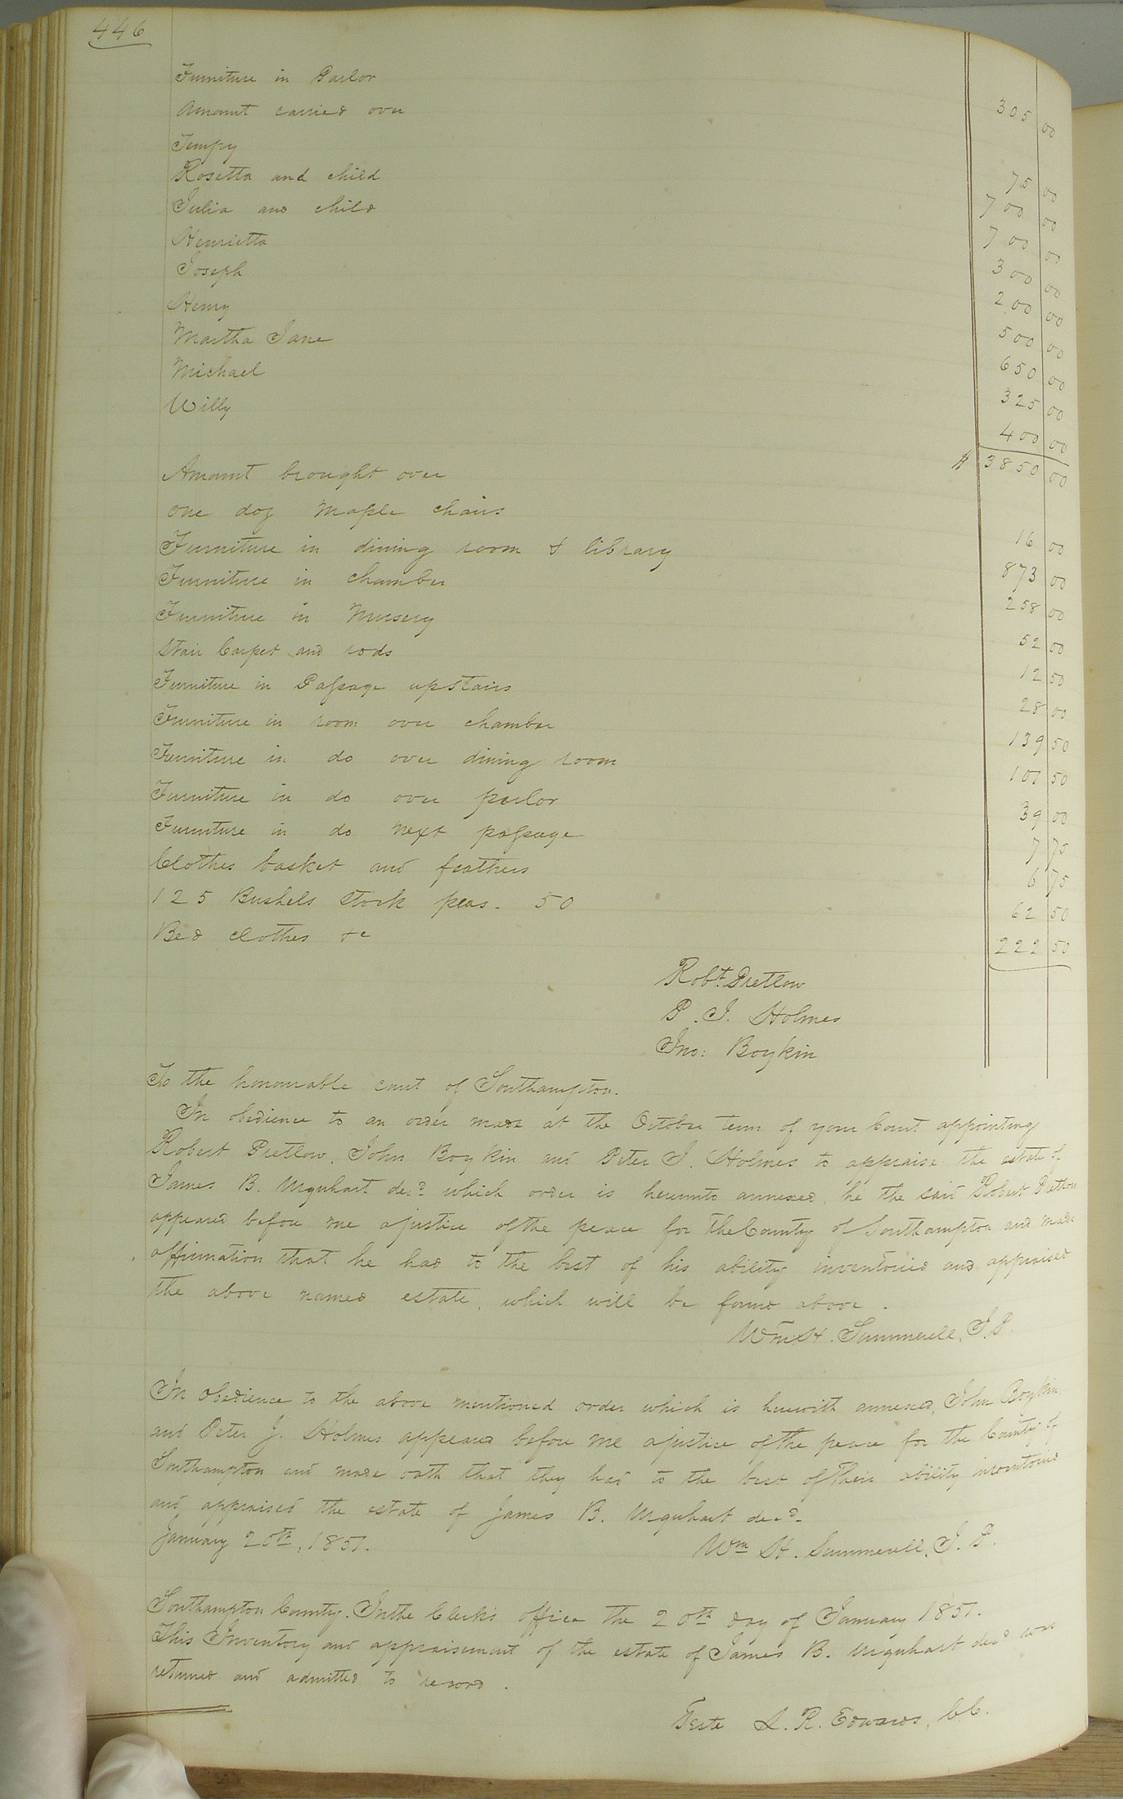 446
Furniture in Parlor 305 00
Amount carried over
Tempy 75 00
Rosetta and child 700 00
Julia and child 700 00
Henrietta 300 00
Joseph 200 00
Henry 500 00
Martha Jane 650 00
Michael 325 00
Willy 400 00
$ 3850 00
Amount brought over
one doz Maple chairs 16 00
Furniture in dining room & library 873 00
Furniture in chamber 258 00
Furniture in Nursery 52 00
Stair Carpet and rods 12 50
Furniture in Passage upstairs 28 00
Furniture in room over chamber 139 50
Furniture in do over dining room 101 50
Furniture in do over parlor 39 00
Furniture in do next passage 7 75
Clothes basket and feathers 6 75
125 Bushels stock peas. 50 62 50
Bed clothes &c 222 50
Robt. Pretlow
P. J. Holmes
Jno: Boykin
To the honourable court of Southampton.
In obedience to an order made at the October term of your Court appointing
Robert Pretlow, John Boykin and Peter J. Holmes to appraise the estate of
James B. Urquhart decd. which order is hereunto annexed, he the said Robert Pretlow
appeared before me a justice of the peace for the County of Southampton and made
affirmation that he had to the best of his ability inventoried and appraised
the above named estate, which will be found above.
Wm. H. Summerell, J.P.
In obedience to the above mentioned order which is herewith annexed, John Boykin
and Peter J. Holmes appeared before me a justice of the peace for the County of
Southampton and made oath that they had to the best of their ability inventoried
and appraised the estate of James B. Urquhart decd.
January 20th, 1851. Wm H. Summerell, J. P.
Southampton County. In the Clerk's office the 20th day of January 1851.
This Inventory and appraisement of the estate of James B. Urquhart decd was
returned and admitted to record.
Teste L. R. Edwards, CC.